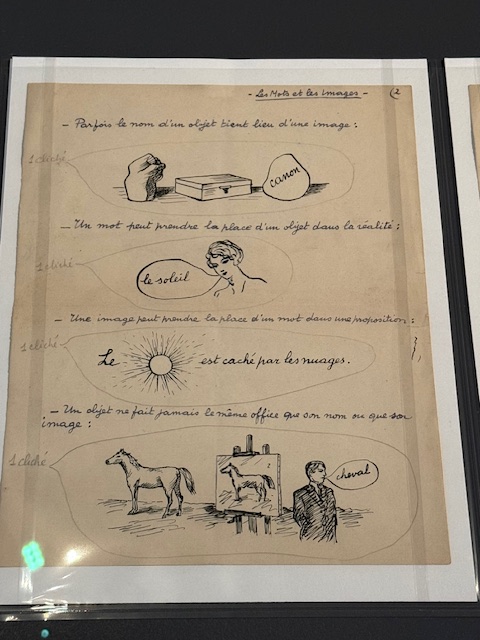 - Les Mots et les images - (2
- Parfois le nom d'un objet tient lieu d'une image :
1 cliché
canon
- Un mot peut prendre la place d'un objet dans la réalité :
1 cliché
le soleil
- Une image peut prendre la place d'un mot dans une proposition :
1 cliché
Le est caché par les nuages.
- Un objet ne fait jamais le même office que son nom ou que son
image :
1 cliché
cheval